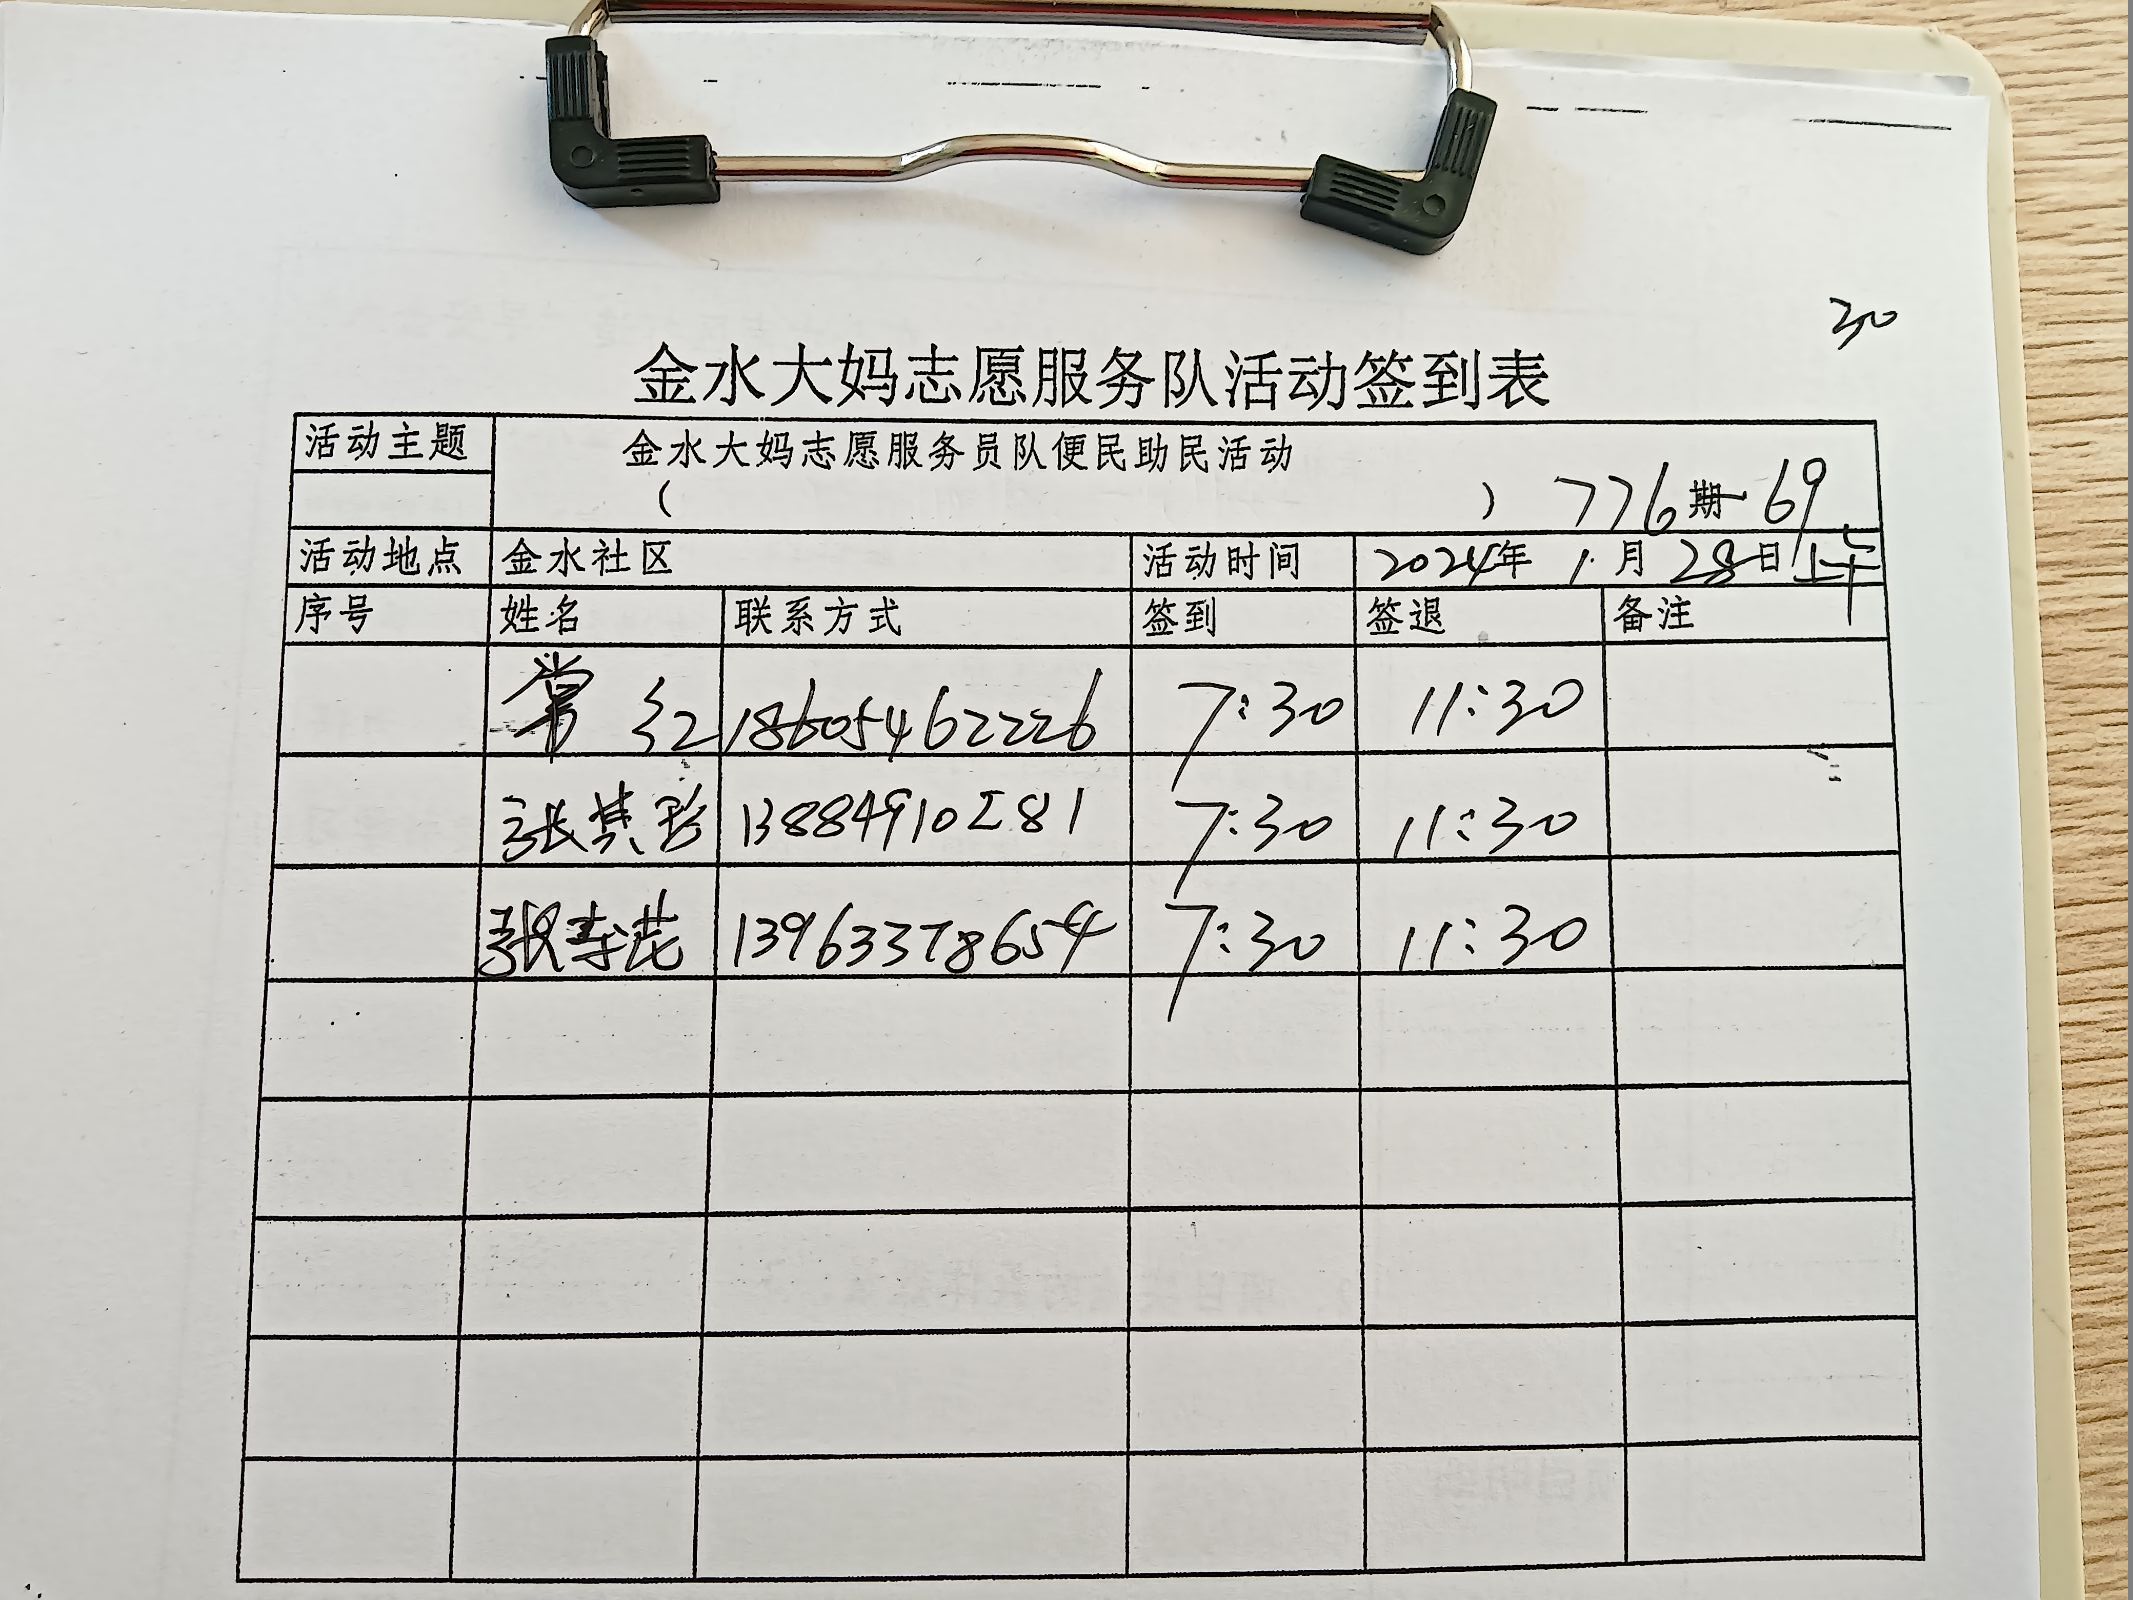 30
金水大妈志愿服务队活动签到表
活动主题 金水大妈志愿服务员队便民助民活动
( ) 776期-69
活动地点 金水社区 活动时间 2024年 1.月 28日上午
序号 姓名 联系方式 签到 签退 备注
常红 18605462226 7:30 11:30
张其珍 13884910281 7:30 11:30
张寿花 13963378654 7:30 11:30